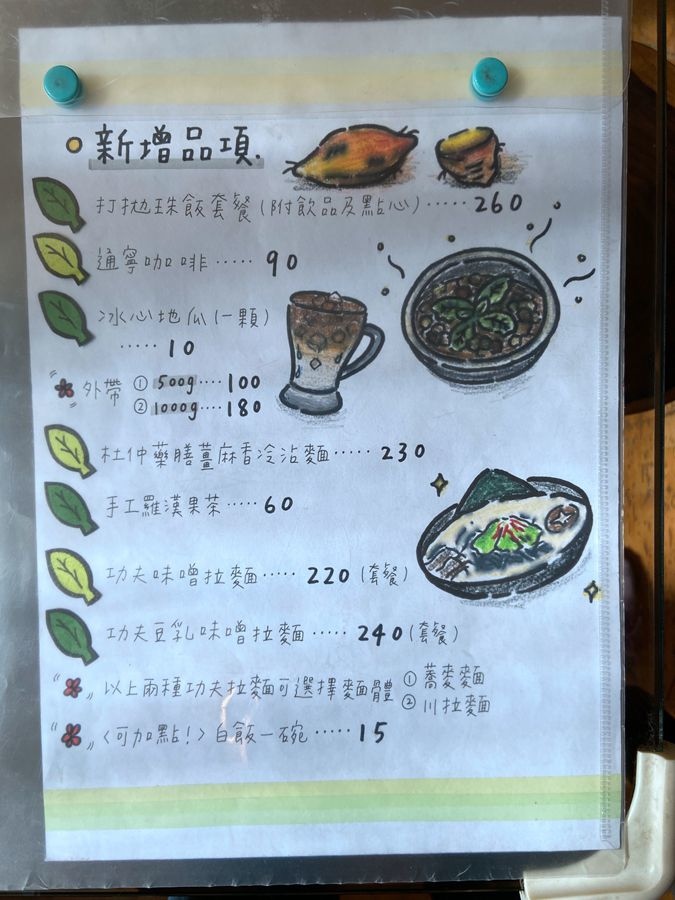 新增品項.
打拋珠飯套餐(附飲品及點心)·····260
通寧咖啡·····90
冰心地瓜(一顆)
·····10
外帶 ① 500g····100
② 1000g····180
杜仲藥膳薑麻香冷沾麵·····230
手工羅漢果茶·····60
功夫味噌拉麵·····220(套餐)
功夫豆乳味噌拉麵·····240(套餐)
以上兩種功夫拉麵可選擇麵體 ① 蕎麥麵
② 川拉麵
〈可加點!〉白飯一碗·····15